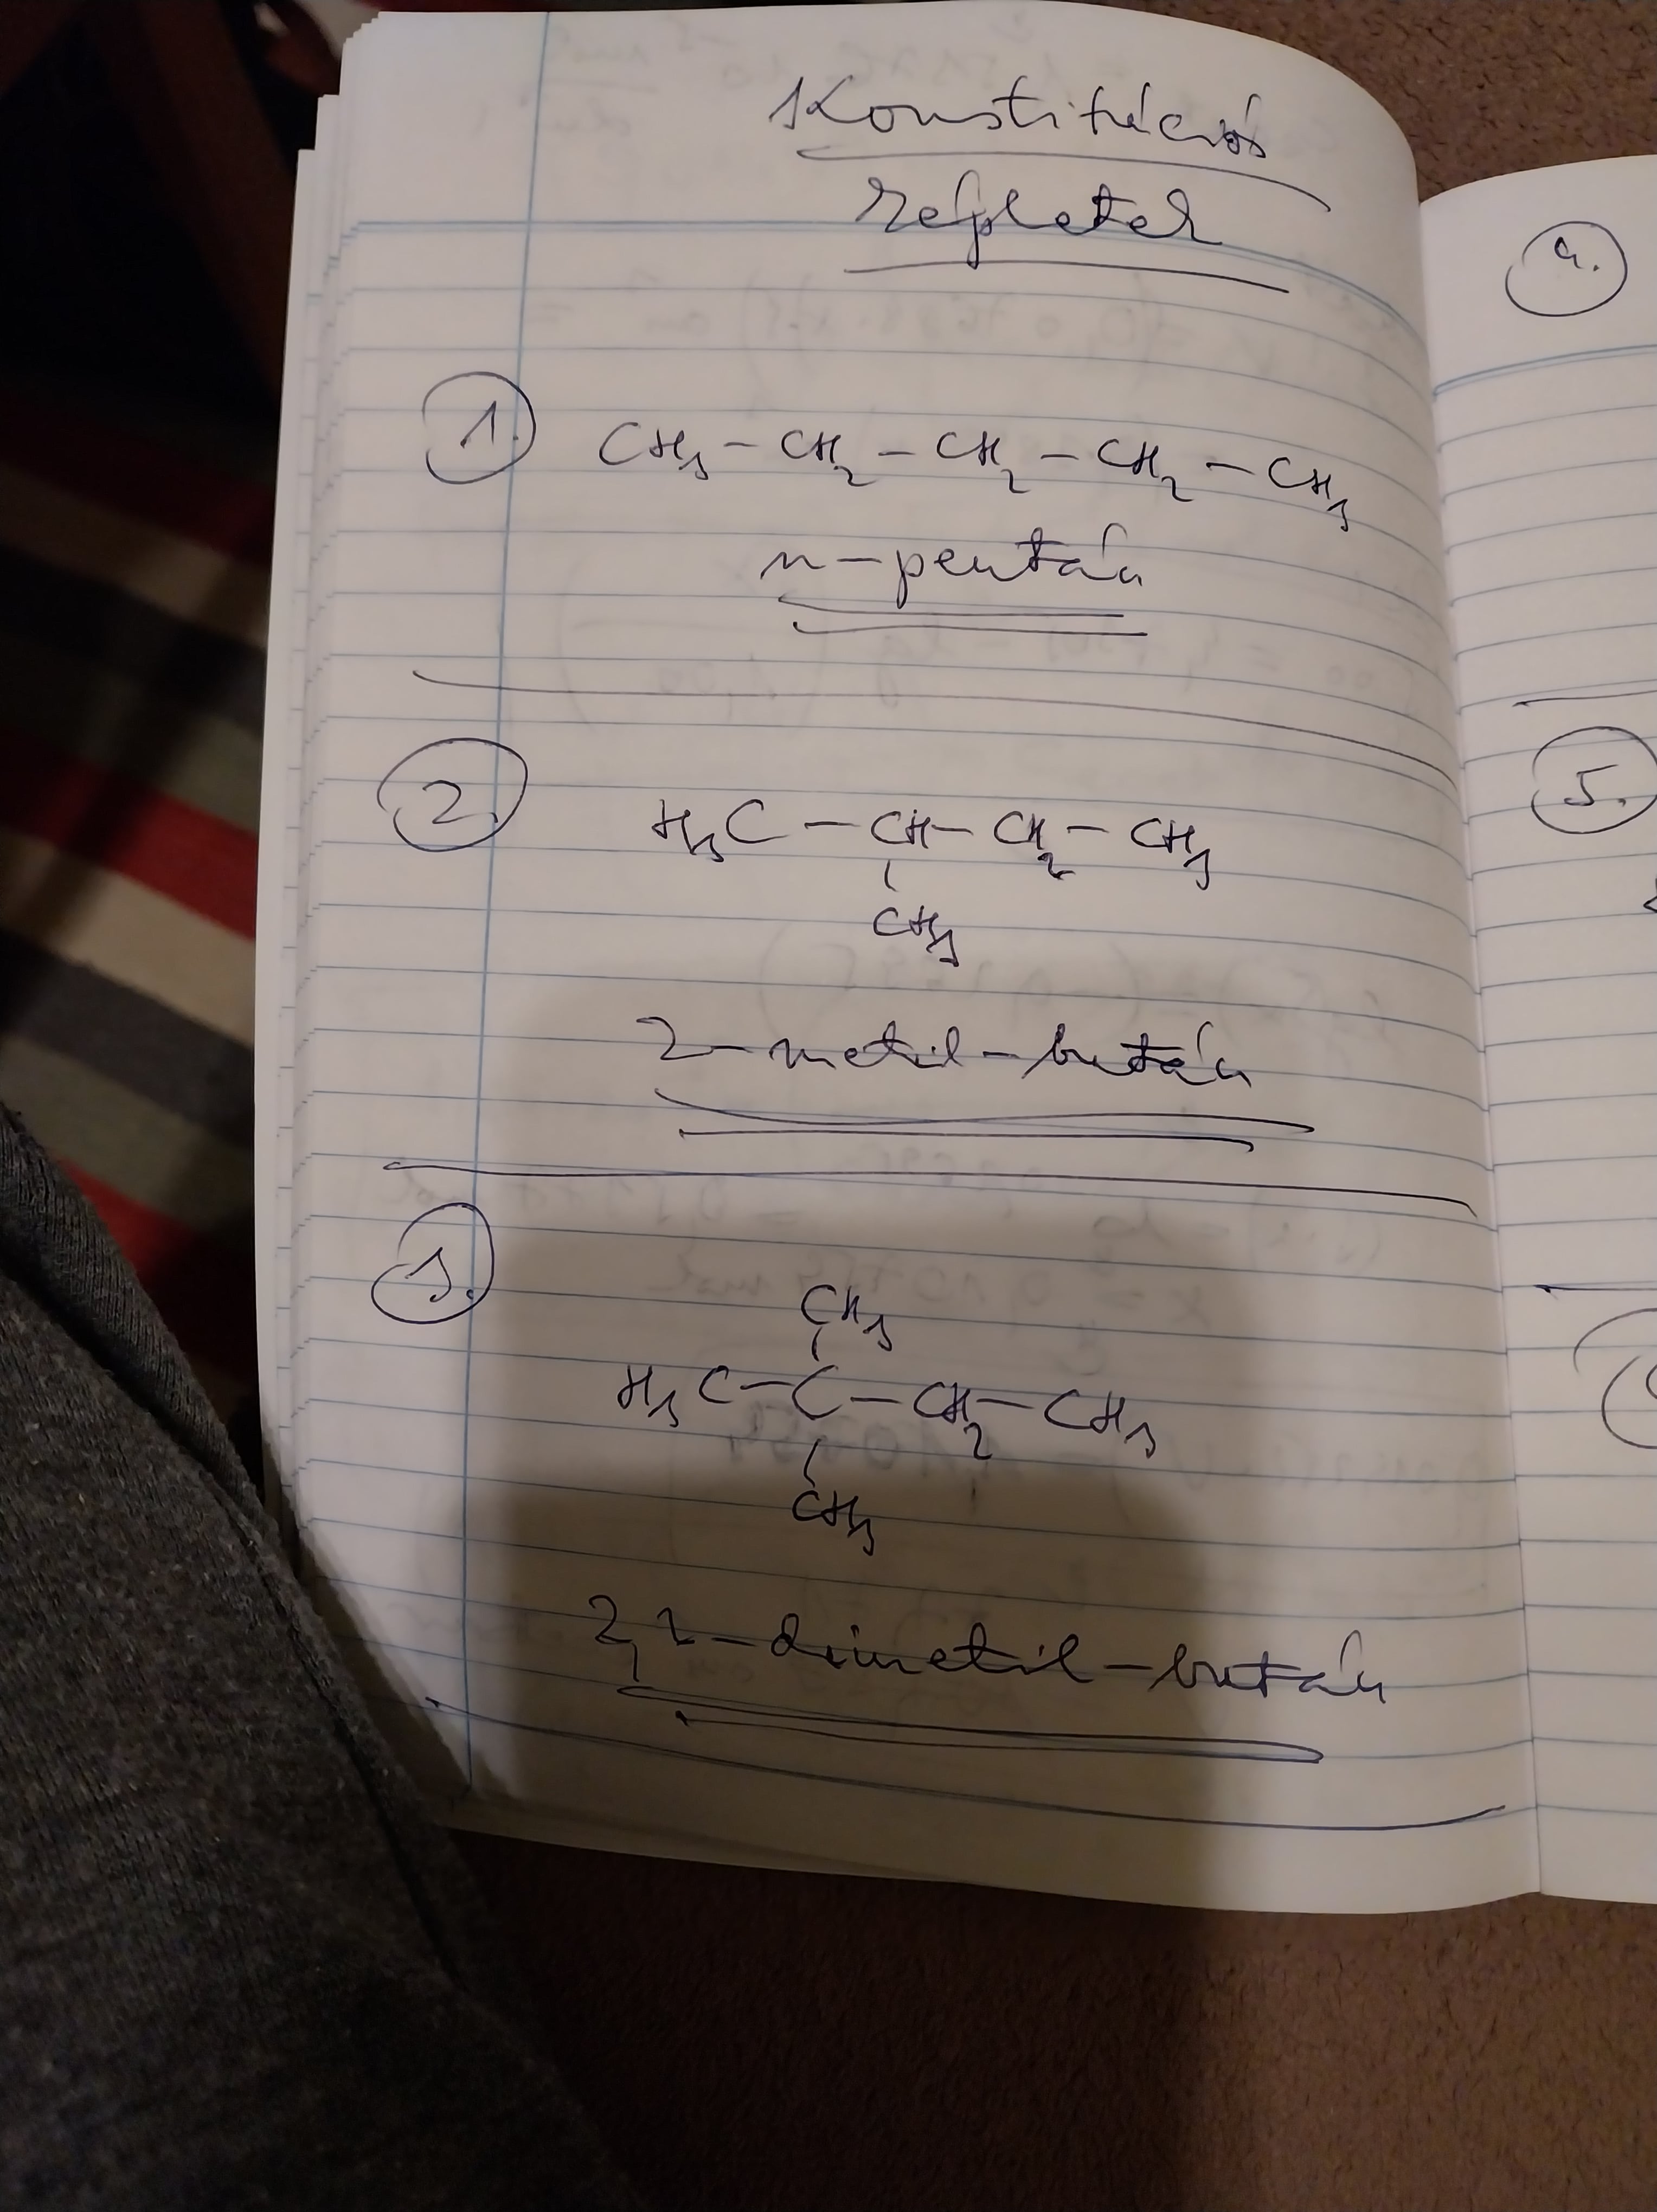 Konstitúciós
képletek
1. CH₃ – CH₂ – CH₂ – CH₂ – CH₃
n-pentán
2. H₃C – CH – CH₂ – CH₃
CH₃
2-metil-bután
3.
CH₃
H₃C – C – CH₂ – CH₃
CH₃
2,2-dimetil-bután
4.
5.